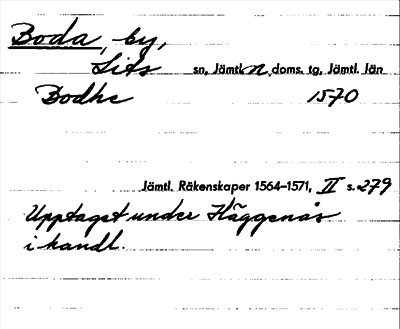 Boda, by,
Lits sn, Jämtl. n. doms. tg, Jämtl. län
Bodhe 1570
Jämtl. Räkenskaper 1564–1571, II s. 279
Upptaget under Häggenås
i handl.